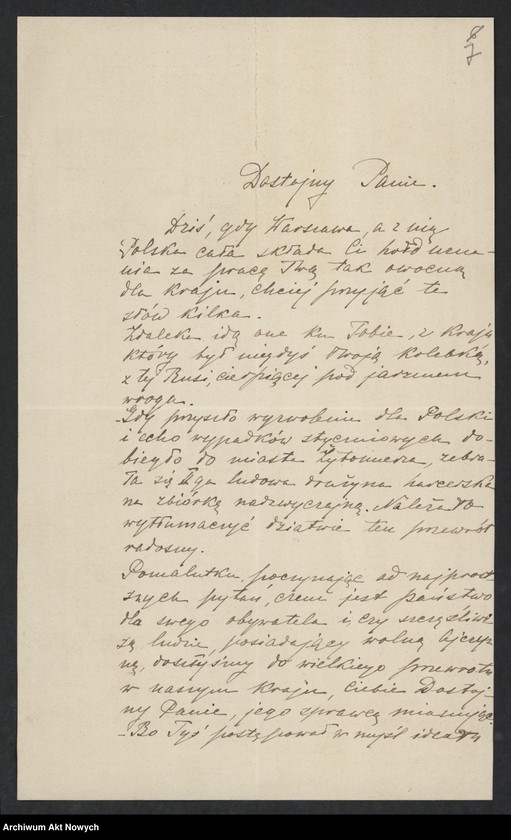 8
7
Dostojny Panie.
Dziś, gdy Warszawa, a z nią
Polska cała składa Ci hołd uzna-
nia za pracę Twą tak owocną
dla kraju, chciej przyjąć te
słów kilka.
Zdaleka idą one ku Tobie, z kraju
który był niegdyś Twoją kolebką,
z tej Rusi, cierpiącej pod jarzmem
wroga.
Gdy przyszło wyzwolenie dla Polski
i echo wypadków styczniowych do-
biegło do miasta Żytomierza, zebra-
ła się IIga ludowa drużyna harcerska
na zbiórkę nadzwyczajną. Należało
wytłumaczyć dziatwie ten przewrót
radosny.
Pomalutku, poczynając od najprost
szych pytań, czem jest państwo
dla swego obywatela i czy szczęśliwi
są ludzie, posiadający wolną Ojczyz
nę, doszłyśmy do wielkiego przewrotu
w naszym kraju, Ciebie Dostoj-
ny Panie, jego sprawcą mianując.
- Bo Tyś postępował w myśl ideału
Archiwum Akt Nowych